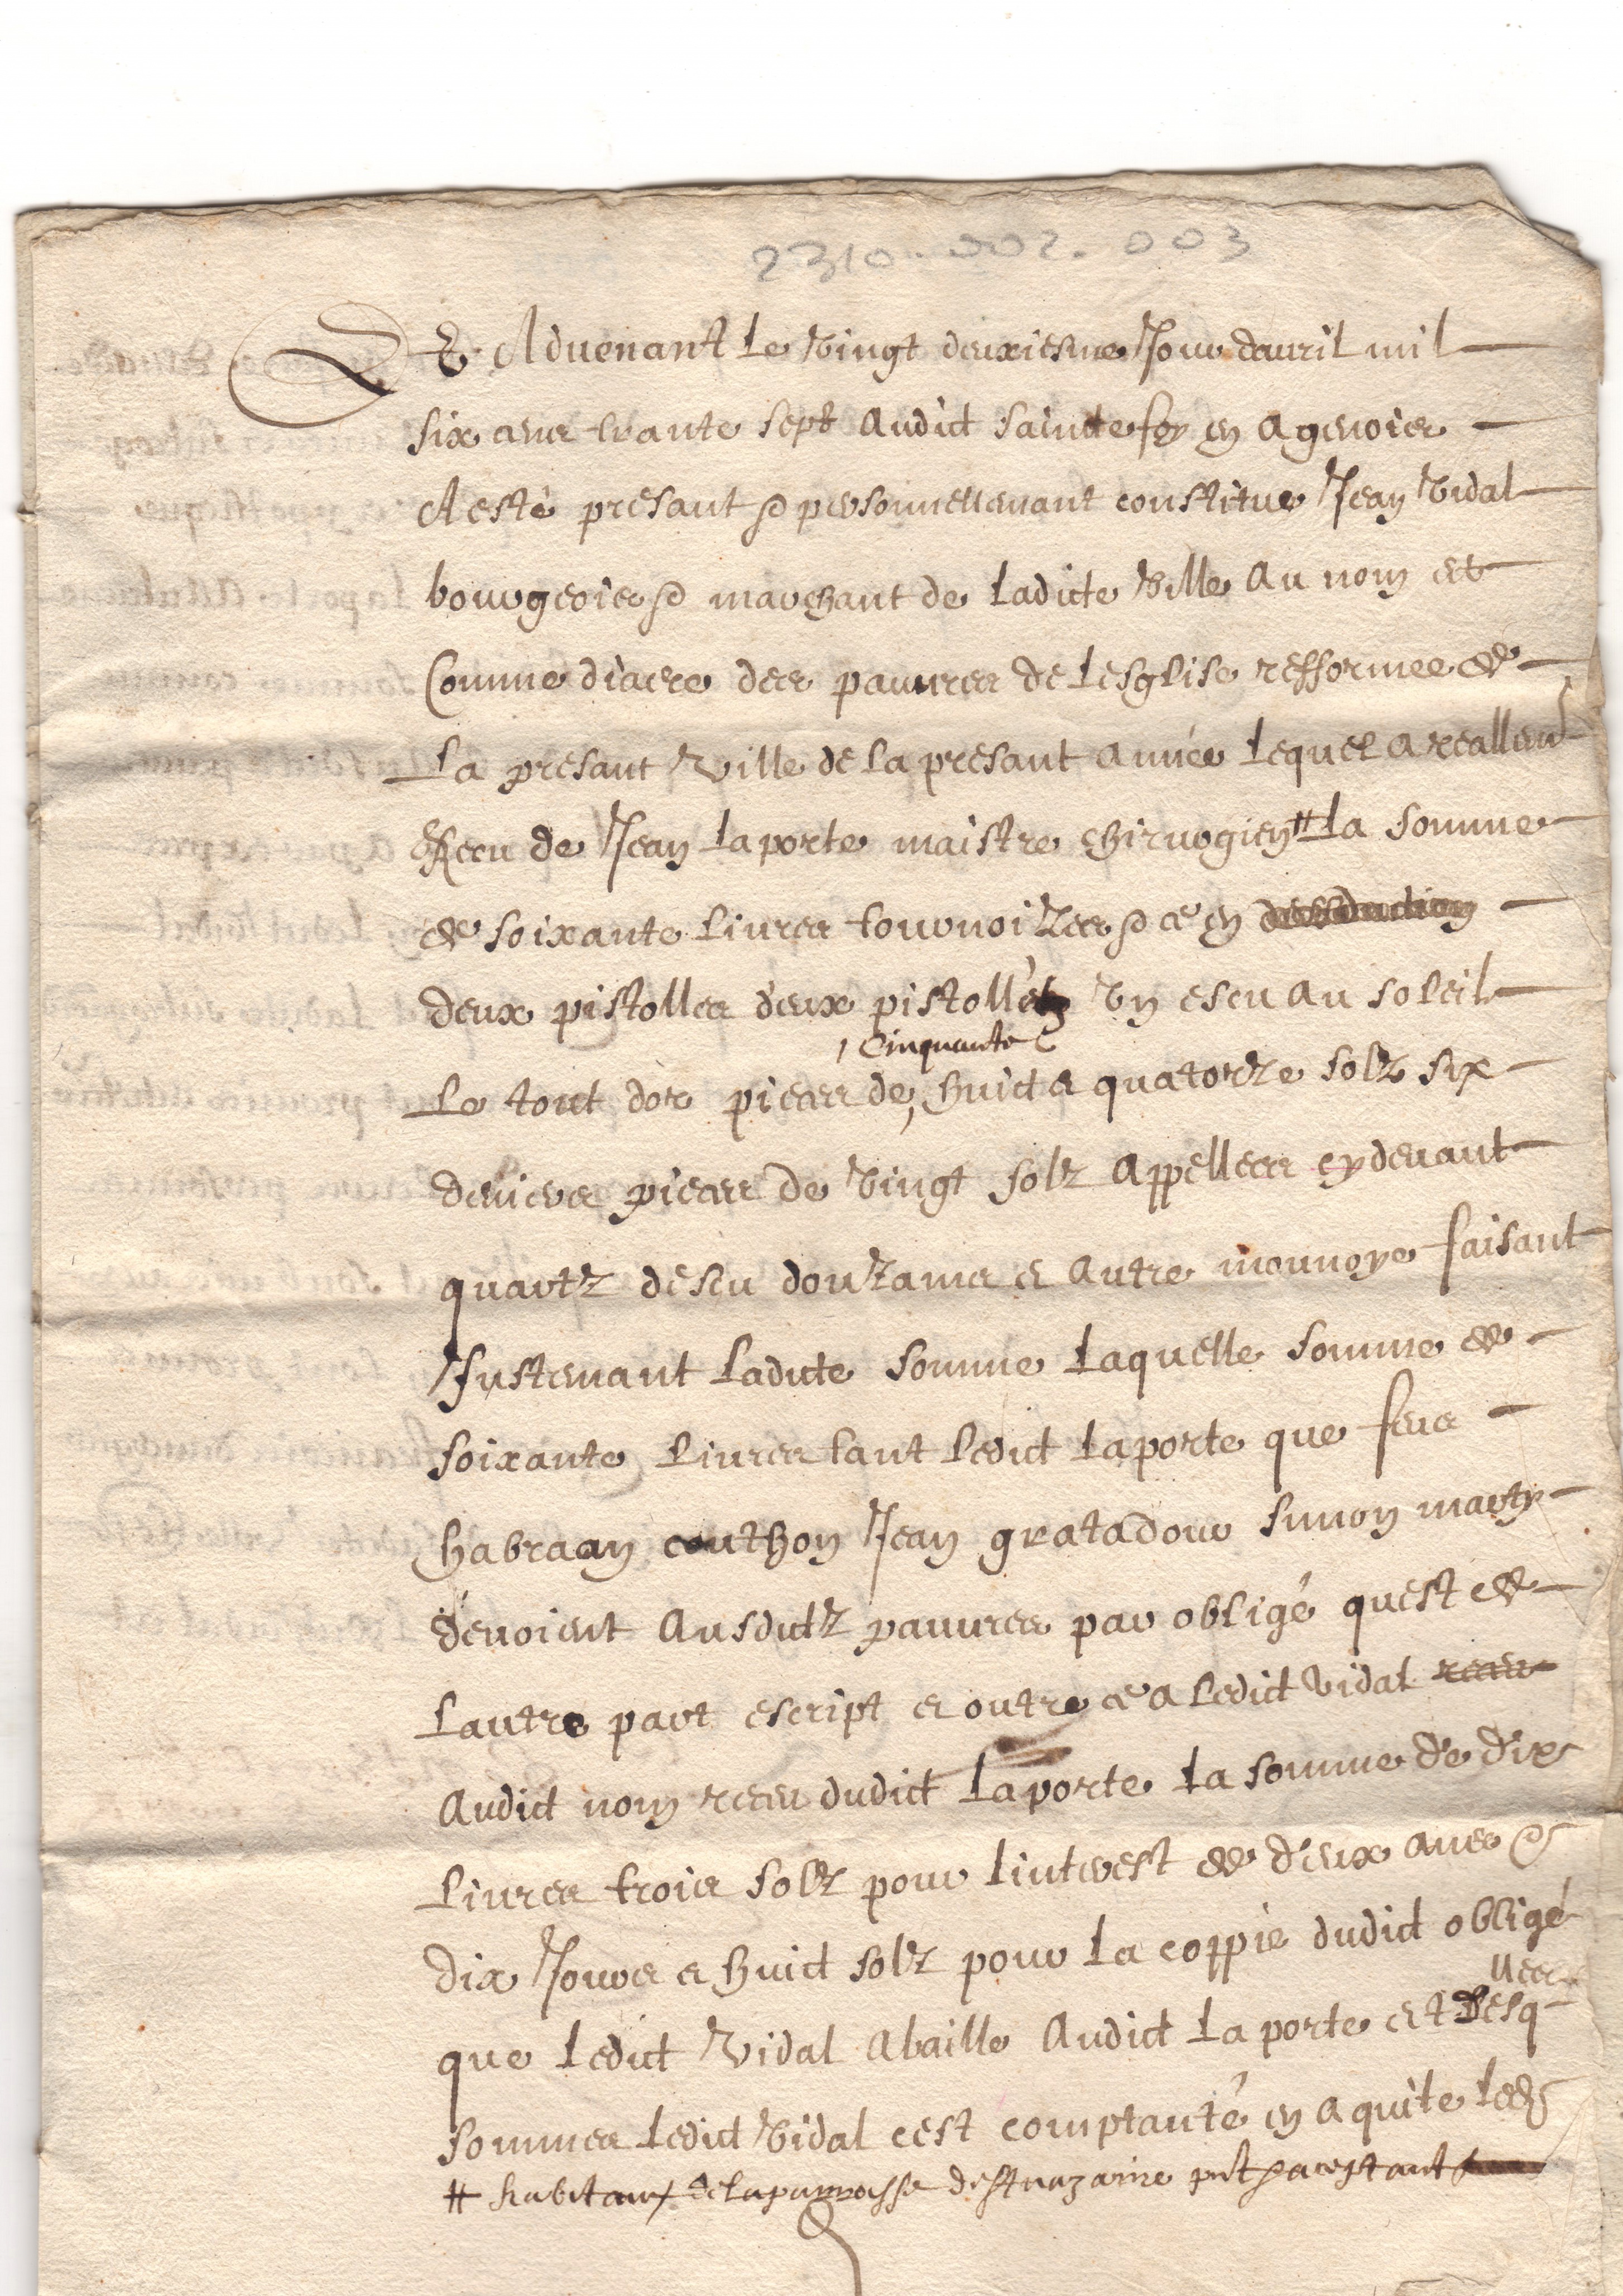 2310.002.003
Et Advenant le vingt deuxiesme Jour davril mil
six cens trante sept audict saincte foy en agenois
A esté presant & personnellemant constitue Jean Vidal
bourgeois & marchant de ladicte ville au nom et
Comme diacre des pauvres de lesglise refformee de
La presant ville de la presant année lequel a reallemt
Receu de Jean laporte maistre chirurgien # la somme
de soixante livres tournoizes & ce en
deux pistolles deux pistolletz un escu au soleil
cinquante
Le tout dor pieces de, huict & quatorze solz six
deniers pieces de vingt solz appellees cydevant
quartz descu douzains & autre monnoye faisant
Justemant ladicte somme laquelle somme de
soixante livres tant ledict laporte que feus
habraan couthon Jean gratadour simon marty
devoient ausdictz pauvres par obligé quest de
lautre part escript & outre ce a ledict vidal receu
audict nom receu dudict laporte la somme de dix
livres trois solz pour linterest de deux ans &
dix Jours & huict solz pour la coppie dudict obligé
que ledict vidal a baille audict laporte et desq
lles
sommes ledict vidal cest comptanté en a quite led
# habitant de la parroisse de st nazaire pnt & aceptant